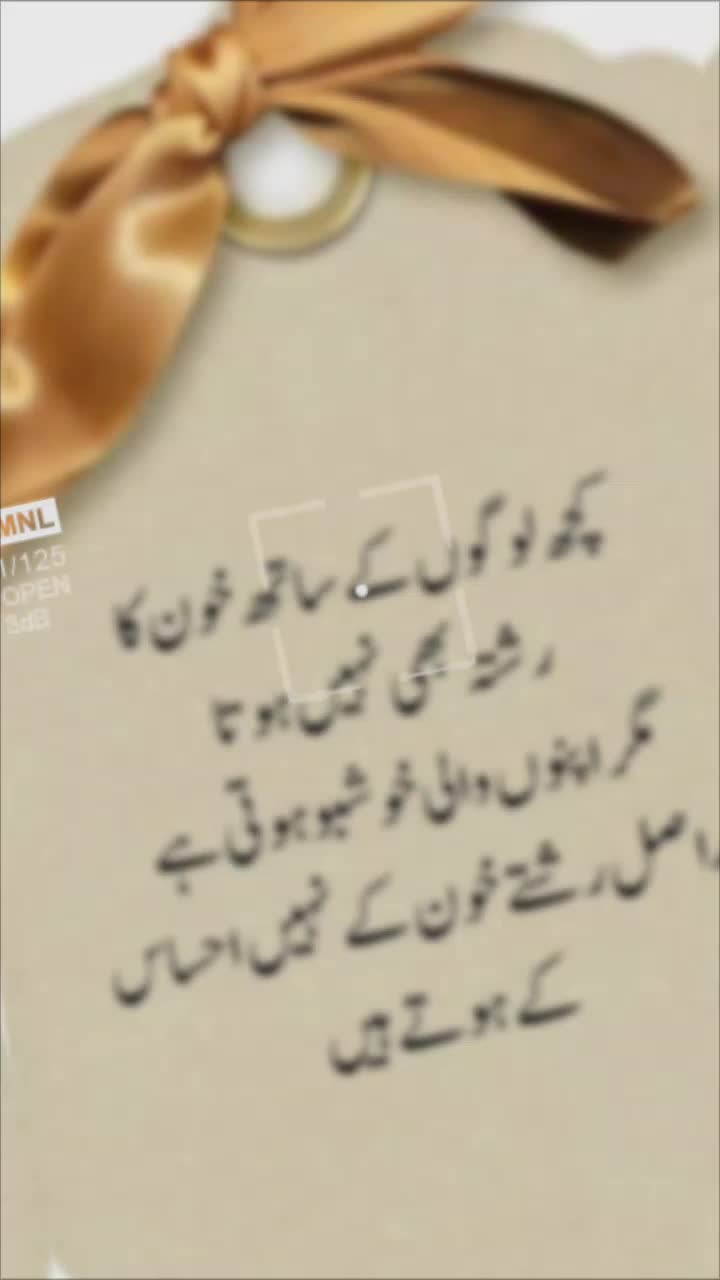 کچھ لوگوں کے ساتھ خون کا
رشتہ بھی نہیں ہوتا
مگر اپنوں والی خوشبو ہوتی ہے
راصل رشتے خون کے نہیں احساس
کے ہوتے ہیں
MNL
1/125
OPEN
3dB